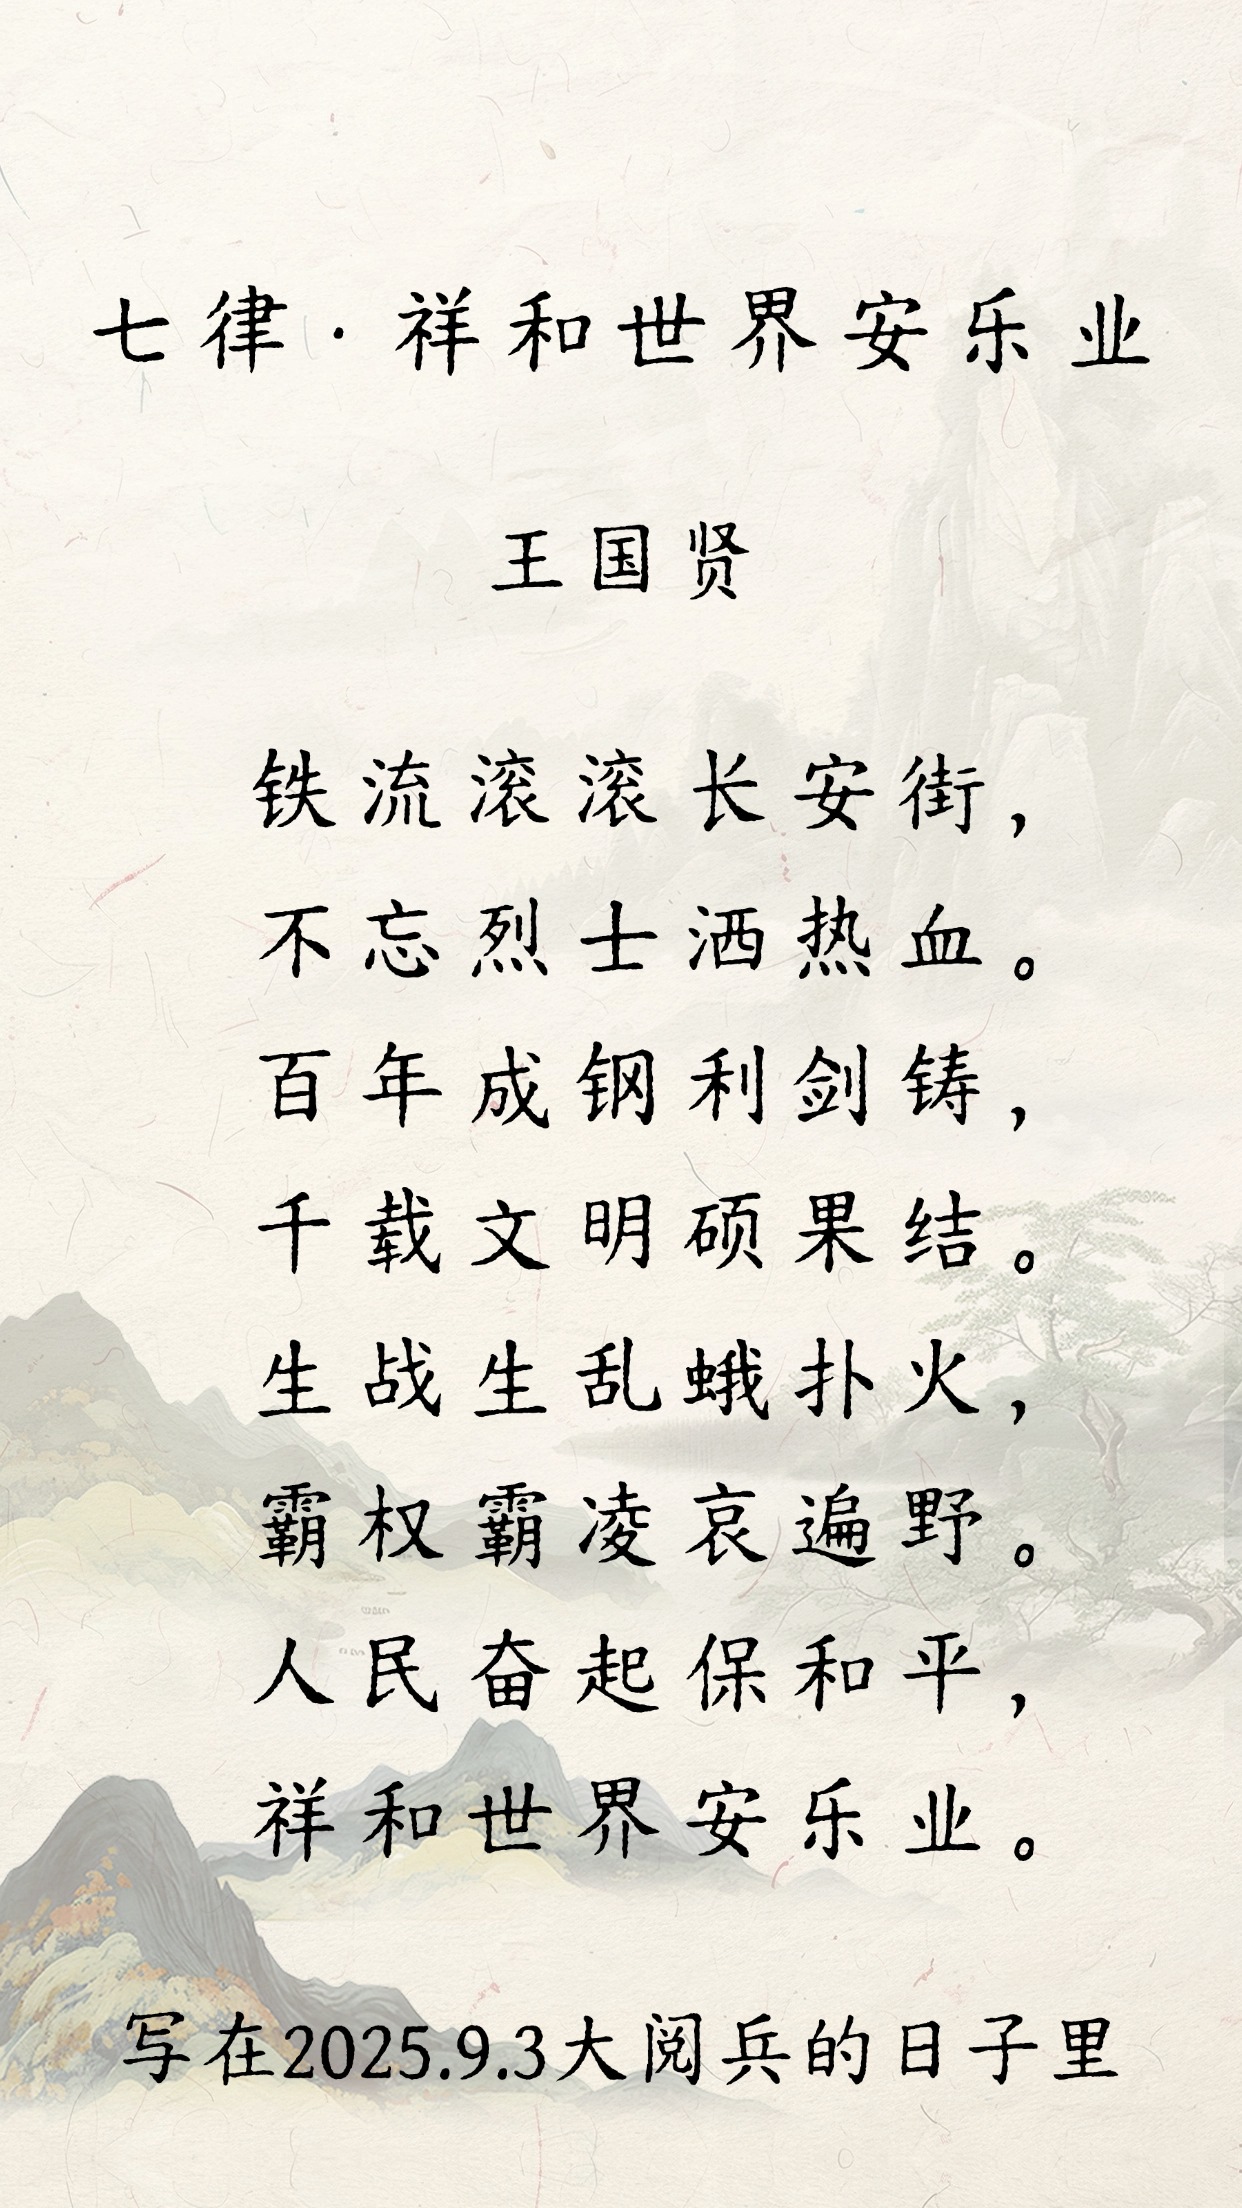 七律·祥和世界安乐业
王国贤
铁流滚滚长安街，
不忘烈士洒热血。
百年成钢利剑铸，
千载文明硕果结。
生战生乱蛾扑火，
霸权霸凌哀遍野。
人民奋起保和平，
祥和世界安乐业。
写在2025.9.3大阅兵的日子里